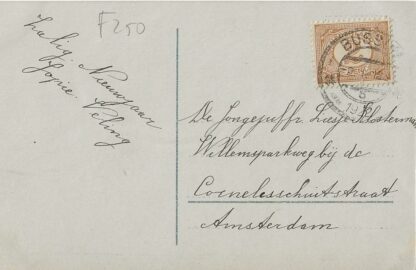 F250
Zalig Nieuwjaar
Jopie Teling
BUSSUM
De Jongejuffr. Loesje Klosterman
Willemsparkweg bij de
Cornelesschuitstraat
Amsterdam